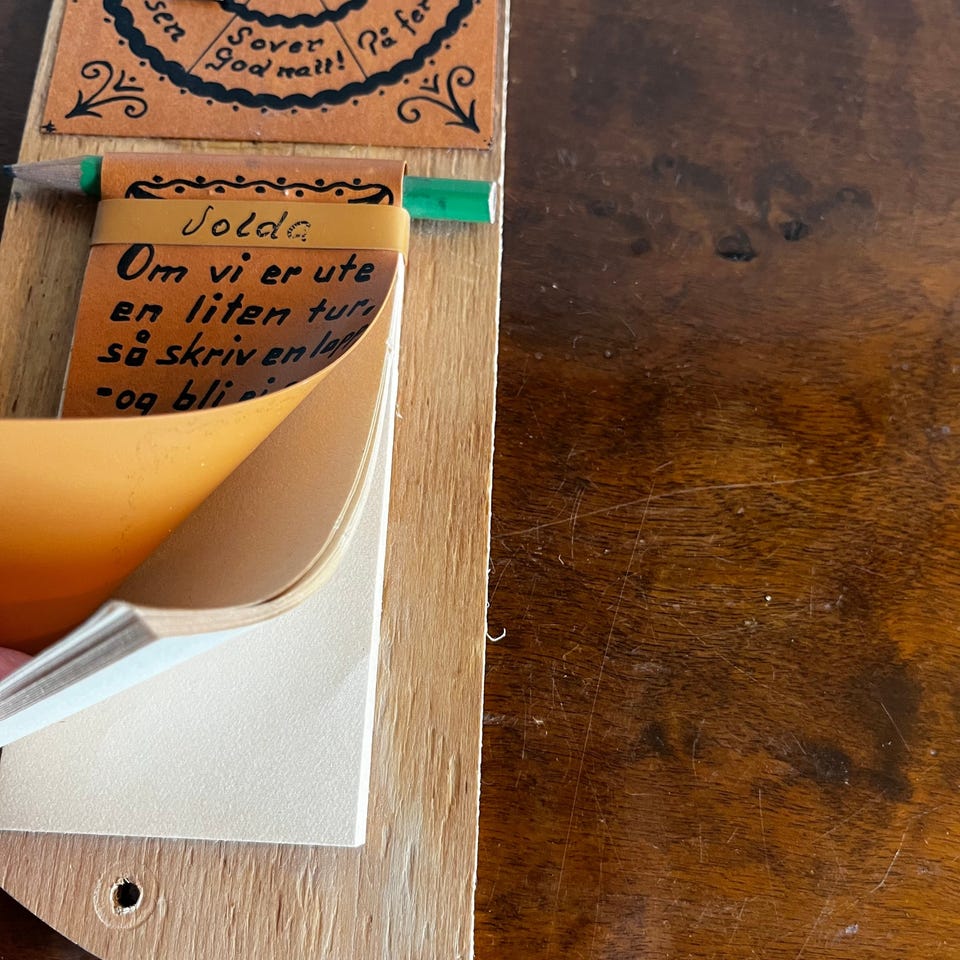 sen
Sover
God natt!
På fer
Solda
Om vi er ute
en liten tur,
så skriv en lapp
-og bli ei